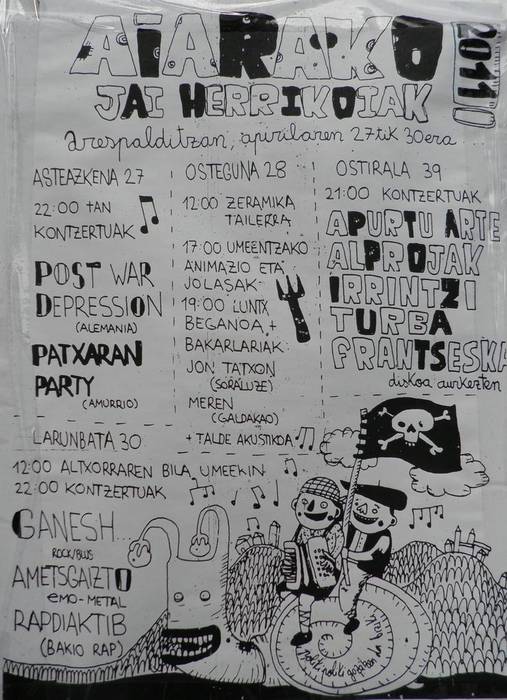 AIARAKO
JAI HERRIKOIAK
2011
Arespalditzan, apirilaren 27tik 30era
ASTEAZKENA 27
22:00 TAN
KONTZERTUAK
POST WAR
DEPRESSION
(ALEMANIA)
PATXARAN
PARTY
(AMURRIO)
OSTEGUNA 28
12:00 ZERAMIKA
TAILERRA
17:00 UMEENTZAKO
ANIMAZIO ETA
JOLASAK
19:00 LUNTX
BEGANOA +
BAKARLARIAK
JON TATXON
(SORALUZE)
MEREN
(GALDAKAO)
+ TALDE AKUSTIKOA
OSTIRALA 39
21:00 KONTZERTUAK
APURTU ARTE
ALPROJAK
IRRINTZI
TURBA
FRANTSESKA
diskoa aurkezten
LARUNBATA 30
12:00 ALTXORRAREN BILA UMEEKIN
22:00 KONTZERTUAK
GANESH...
ROCK/BLUS
AMETSGAIZTO
EMO-METAL
RAPDIAKTIB
(BAKIO RAP)
poliki poliki